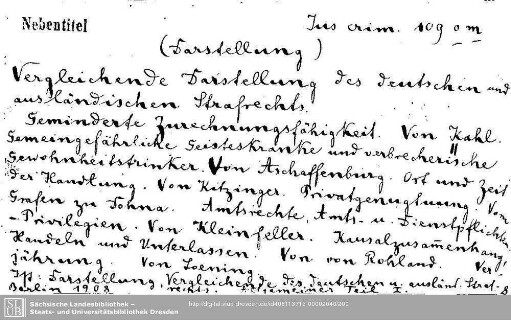 Nebentitel
Jus crim. 109 o m
(Darstellung)
Vergleichende Darstellung des deutschen und
ausländischen Strafrechts.
Geminderte Zurechnungsfähigkeit. Von Kahl.
Gemeingefährliche Geisteskranke und verbrecherische
Gewohnheitstrinker. Von Aschaffenburg. Ort und Zeit
der Handlung. Von Kitzinger. Privatgenugtuung. Vom
Grafen zu Dohna. Amtsrechte, Amts- u. Dienstpflichten,
- Privilegien. Von Kleinfeller. Kausalzusammenhang,
Handeln und Unterlassen. Von von Rohland. Ver
jährung. Von Loening.
Darstellung, Vergleichende des deutschen u. ausländ. Straf-
Berlin 1908 rechts. Allgemeiner Teil
Sächsische Landesbibliothek –
Staats- und Universitätsbibliothek Dresden